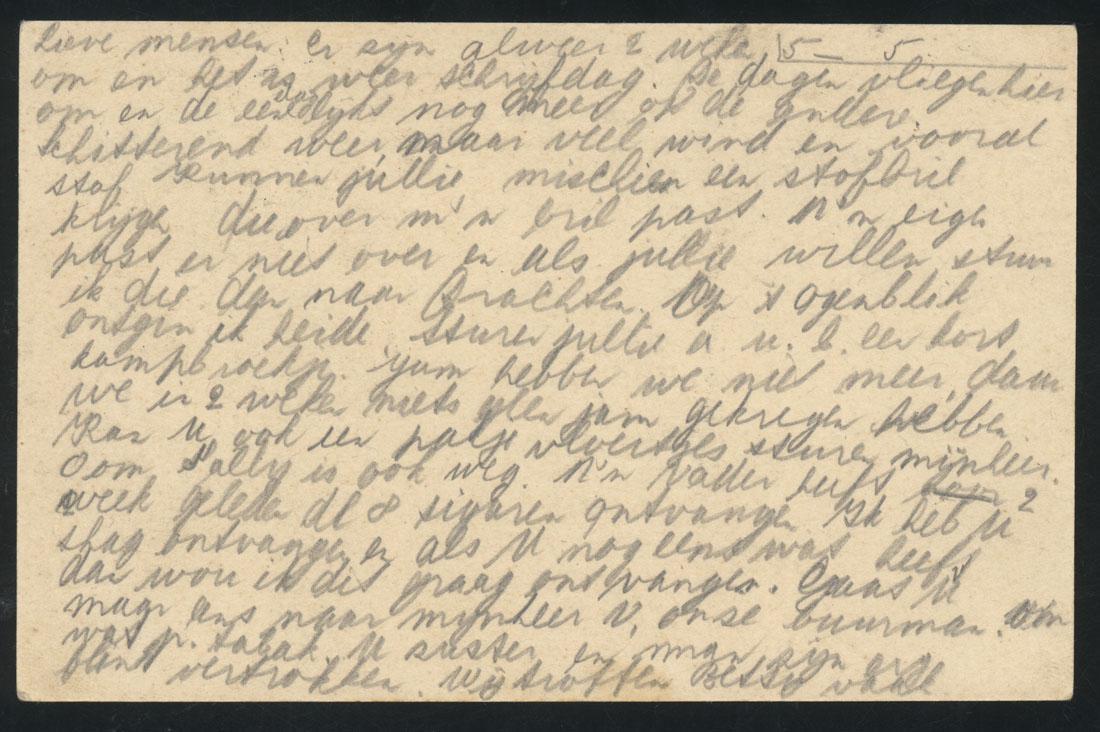 Lieve mensen: Er zyn alweer 2 weke 5 - 5
om en het is weer schryfdag. De dagen vliegen hier
om en de een lykt nog meer op de andere.
Schitterend weer, maar veel wind en vooral
stof Kunnen jullie mischien een stofbril
krijgen die over m'n bril past. M'n eigen
past er niet over en als jullie willen stuur
ik die dan naar Drachten. Op 't ogenblik
ontgin ik heide. Sturen jullie a. u. b. een kort
kampbroekje. Jam hebben we niet meer, daar
we in 2 weken niets geen jam gekregen hebben.
Kan U ook een patje vloeitjes sturen mijnheer.
Oom Sally is ook weg. M'n Vader heeft 2
week geleden de 8 sigaren ontvangen Ik heb U
shag ontvangen en als U nog eens wat heeft
dan wou ik dit graag ontvangen. Gaas U
maar ans naar mynheer V, onse buurman. om
wat p. tabak. U zuster en man zyn
blind vertrokken. Wy troffen Betsy